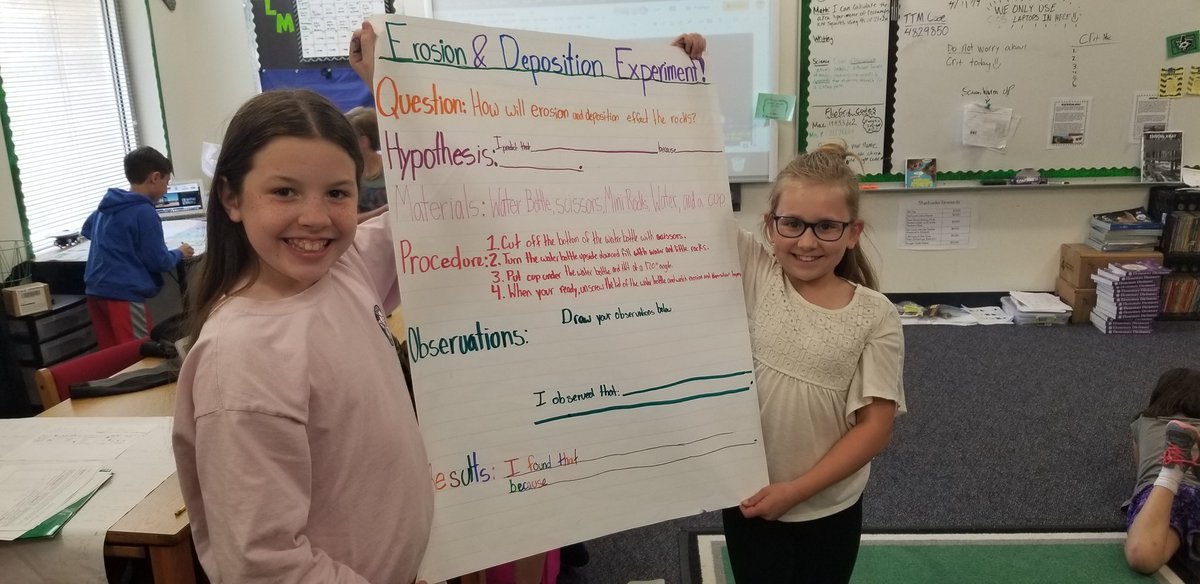 Erosion & Deposition Experiment!
Question: How will erosion and deposition effect the rocks?
Hypothesis: I predict that because
Materials: Water Bottle, scissors, Mini Rocks, Water, and a cup
Procedure: 1. Cut off the bottom of the water bottle with scissors.
2. Turn the water bottle upside down and fill with water and little rocks.
3. Put cup under the water bottle and tilt at a 120° angle.
4. When your ready, unscrew the lid of the water bottle and watch erosion and deposition happen
Observations:
Draw your observations below
I observed that:
Results: I found that
because
LM
Math: I can calculate the
Writing
Science
TTM Code
4829850
WE ONLY USE
LAPTOPS IN HERE!!
Do not worry about
Crit today!
Crit #s
1.
2.
3.
4.